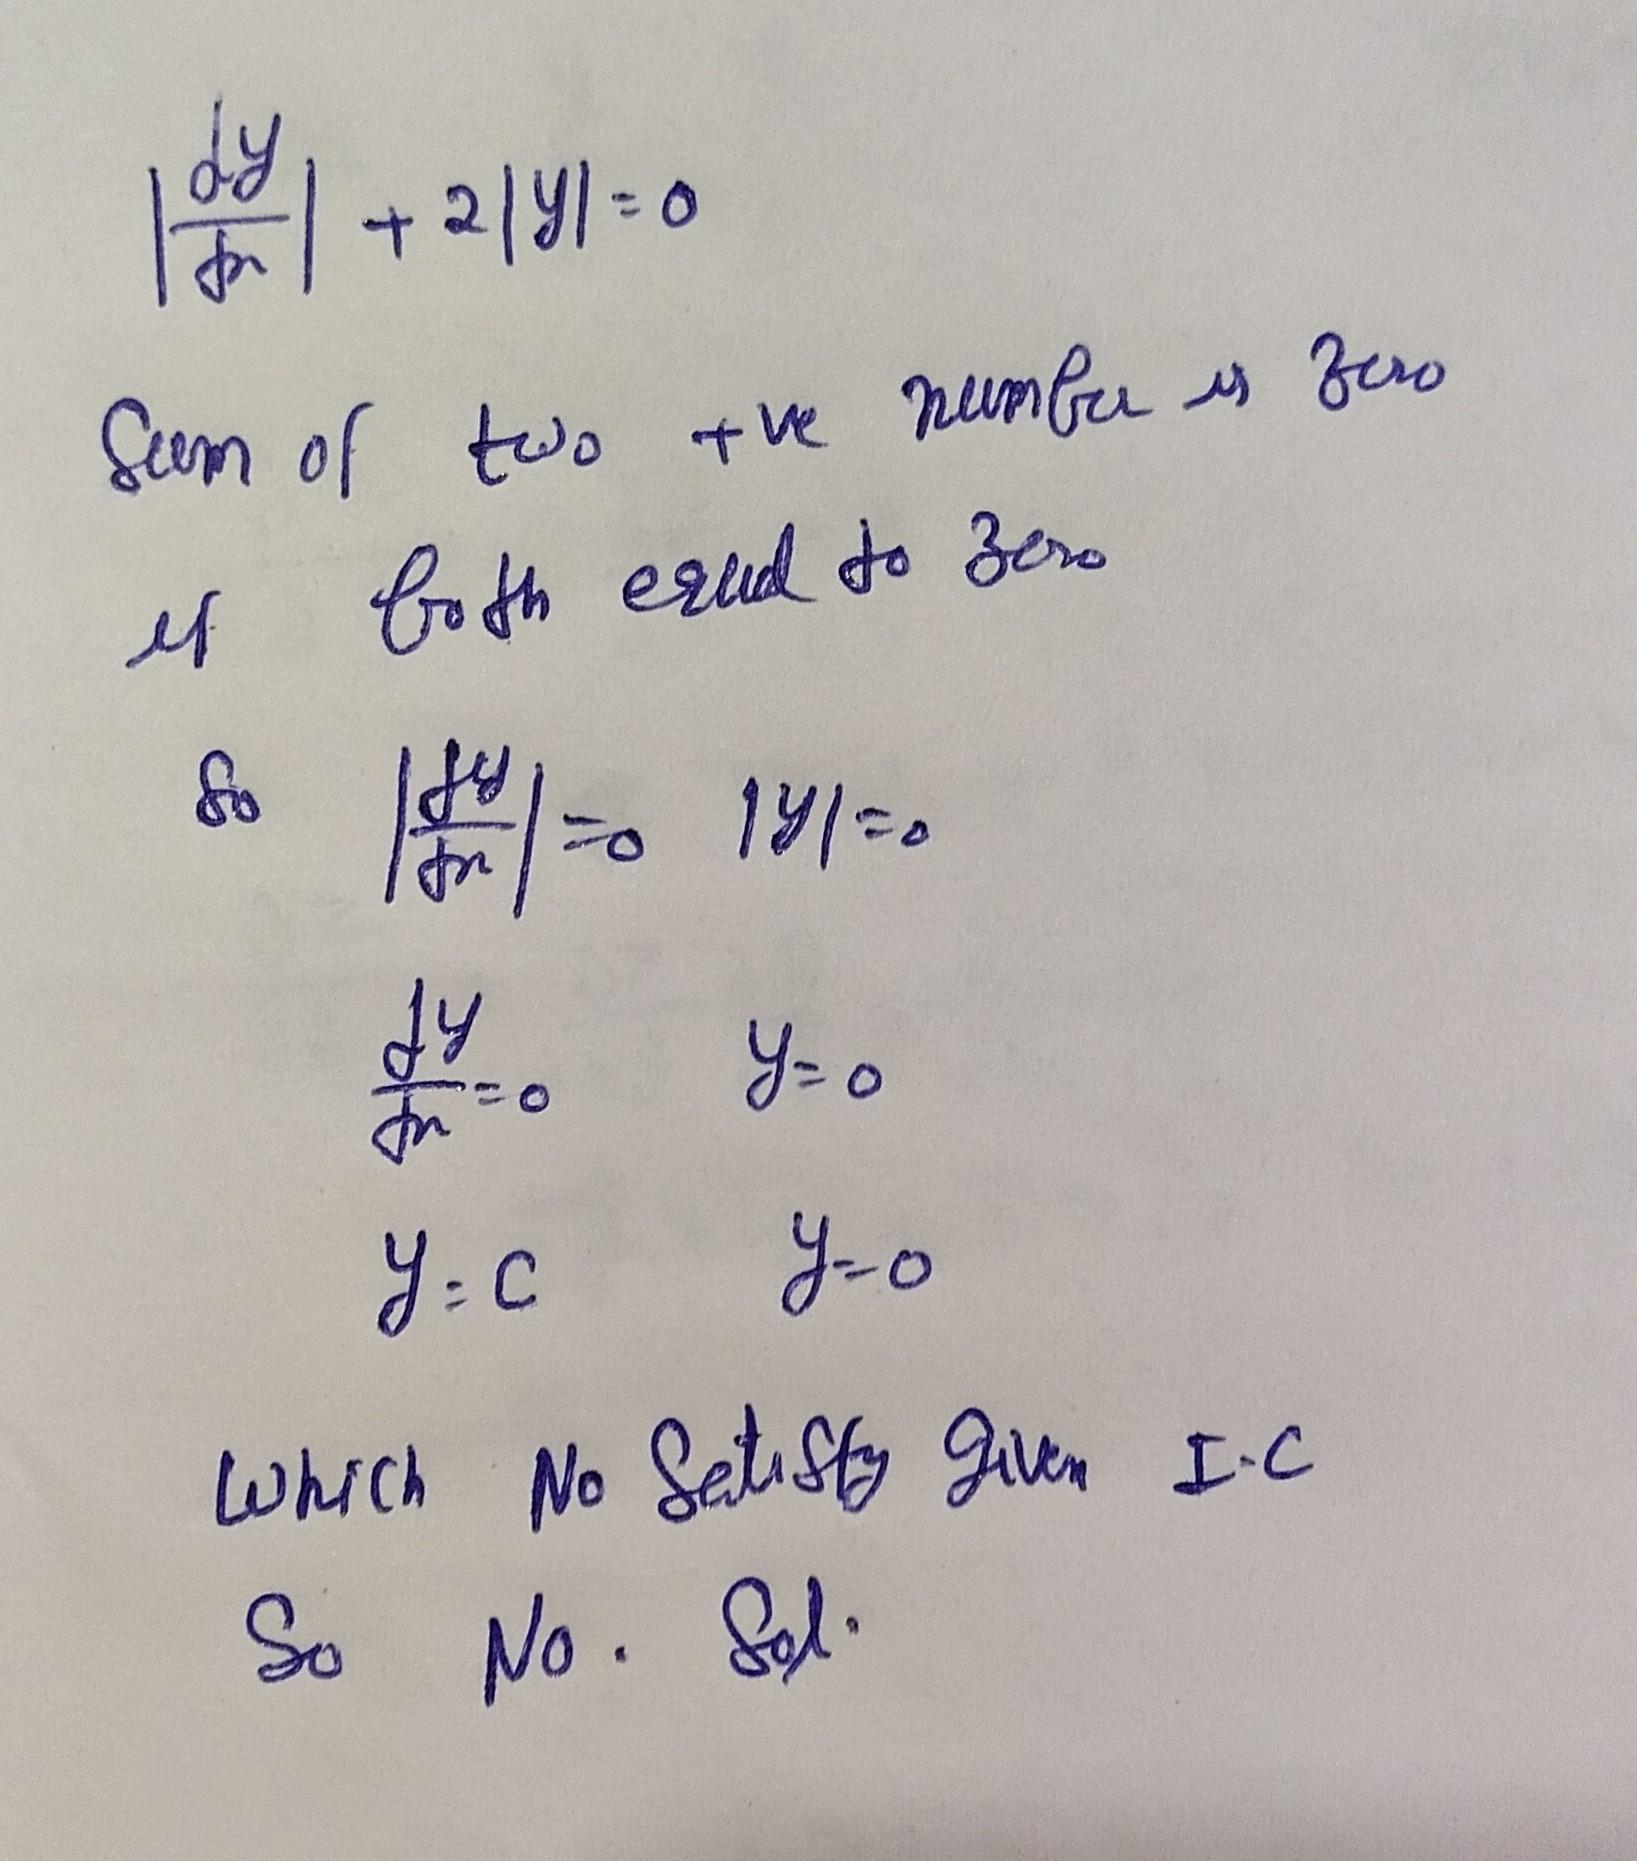 |dy/dx| + 2|y| = 0
Sum of two +ve number is zero
if both equal to zero
So |dy/dx| = 0 |y| = 0
dy/dx = 0 y = 0
y = c y = 0
Which No Satisfy given I.C
So No. Sol.